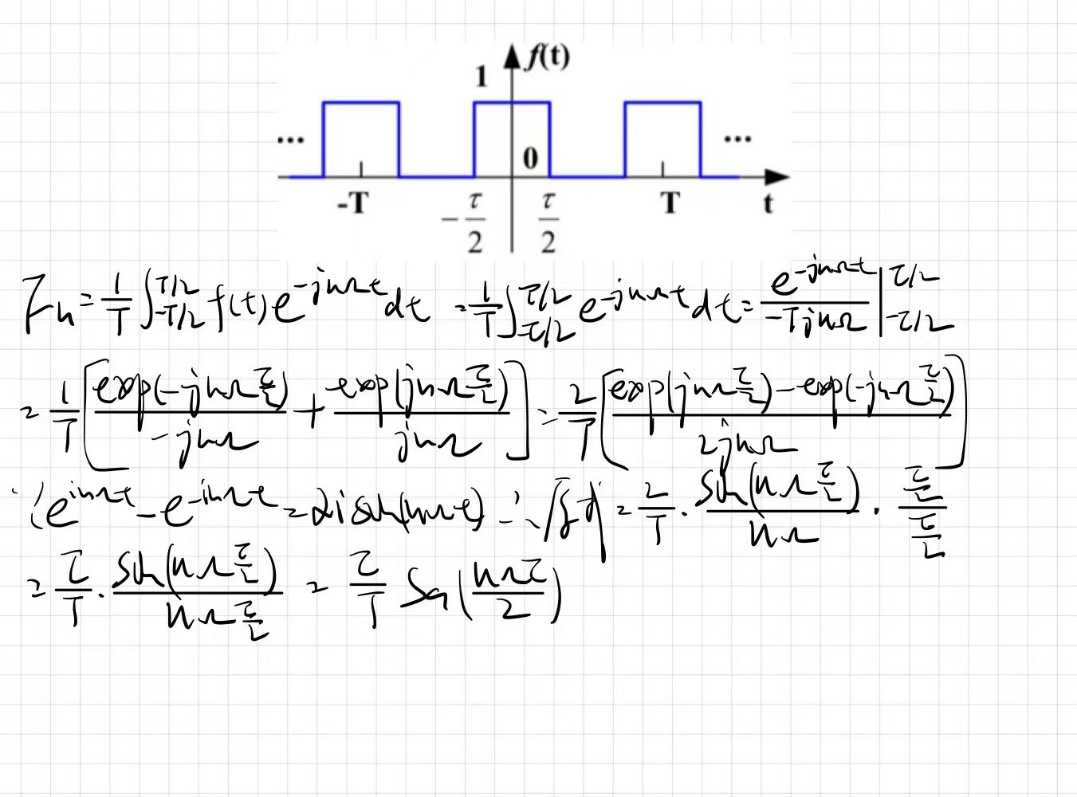 f(t)
1
... 0 ...
-T -τ/2 τ/2 T t
Fn = 1/T ∫_{-T/2}^{T/2} f(t)e^{-jnΩt}dt = 1/T ∫_{-τ/2}^{τ/2} e^{-jnΩt}dt = e^{-jnΩt}/(-TjnΩ) |_{-τ/2}^{τ/2}
= 1/T [exp(-jnΩ τ/2)/(-jnΩ) + exp(jnΩ τ/2)/(jnΩ)] = 2/T [(exp(jnΩ τ/2) - exp(-jnΩ τ/2))/(2jnΩ)]
∵ (e^{inΩt} - e^{-inΩt} = 2i sin(nΩt) ∴ 原式 = 2/T · sin(nΩ τ/2)/(nΩ) · (τ/2)/(τ/2)
= τ/T · sin(nΩ τ/2)/(nΩ τ/2) = τ/T Sa(nΩτ/2)